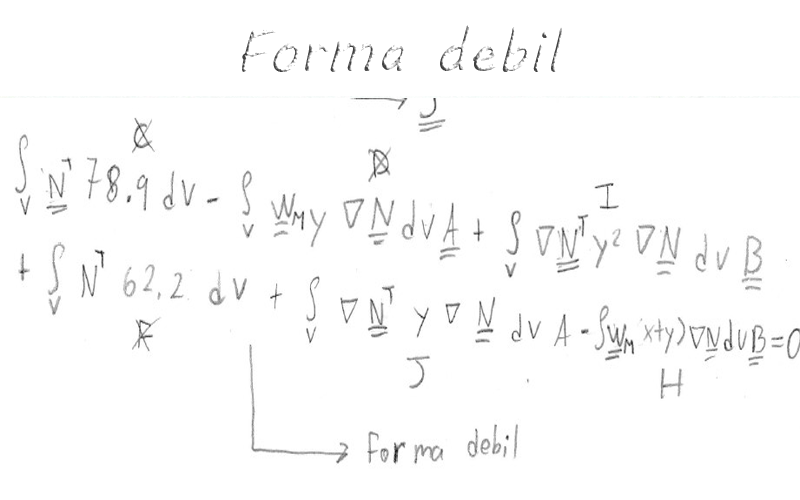 Forma debil
J
C D I
∫_V N^T 78.9 dV - ∫_V W_M y ∇N dV A + ∫_V ∇N^T y² ∇N dV B
+ ∫_V N^T 62.2 dV + ∫_V ∇N^T y ∇N dV A - ∫ W_M (x+y) ∇N dV B = 0
F J H
Forma debil